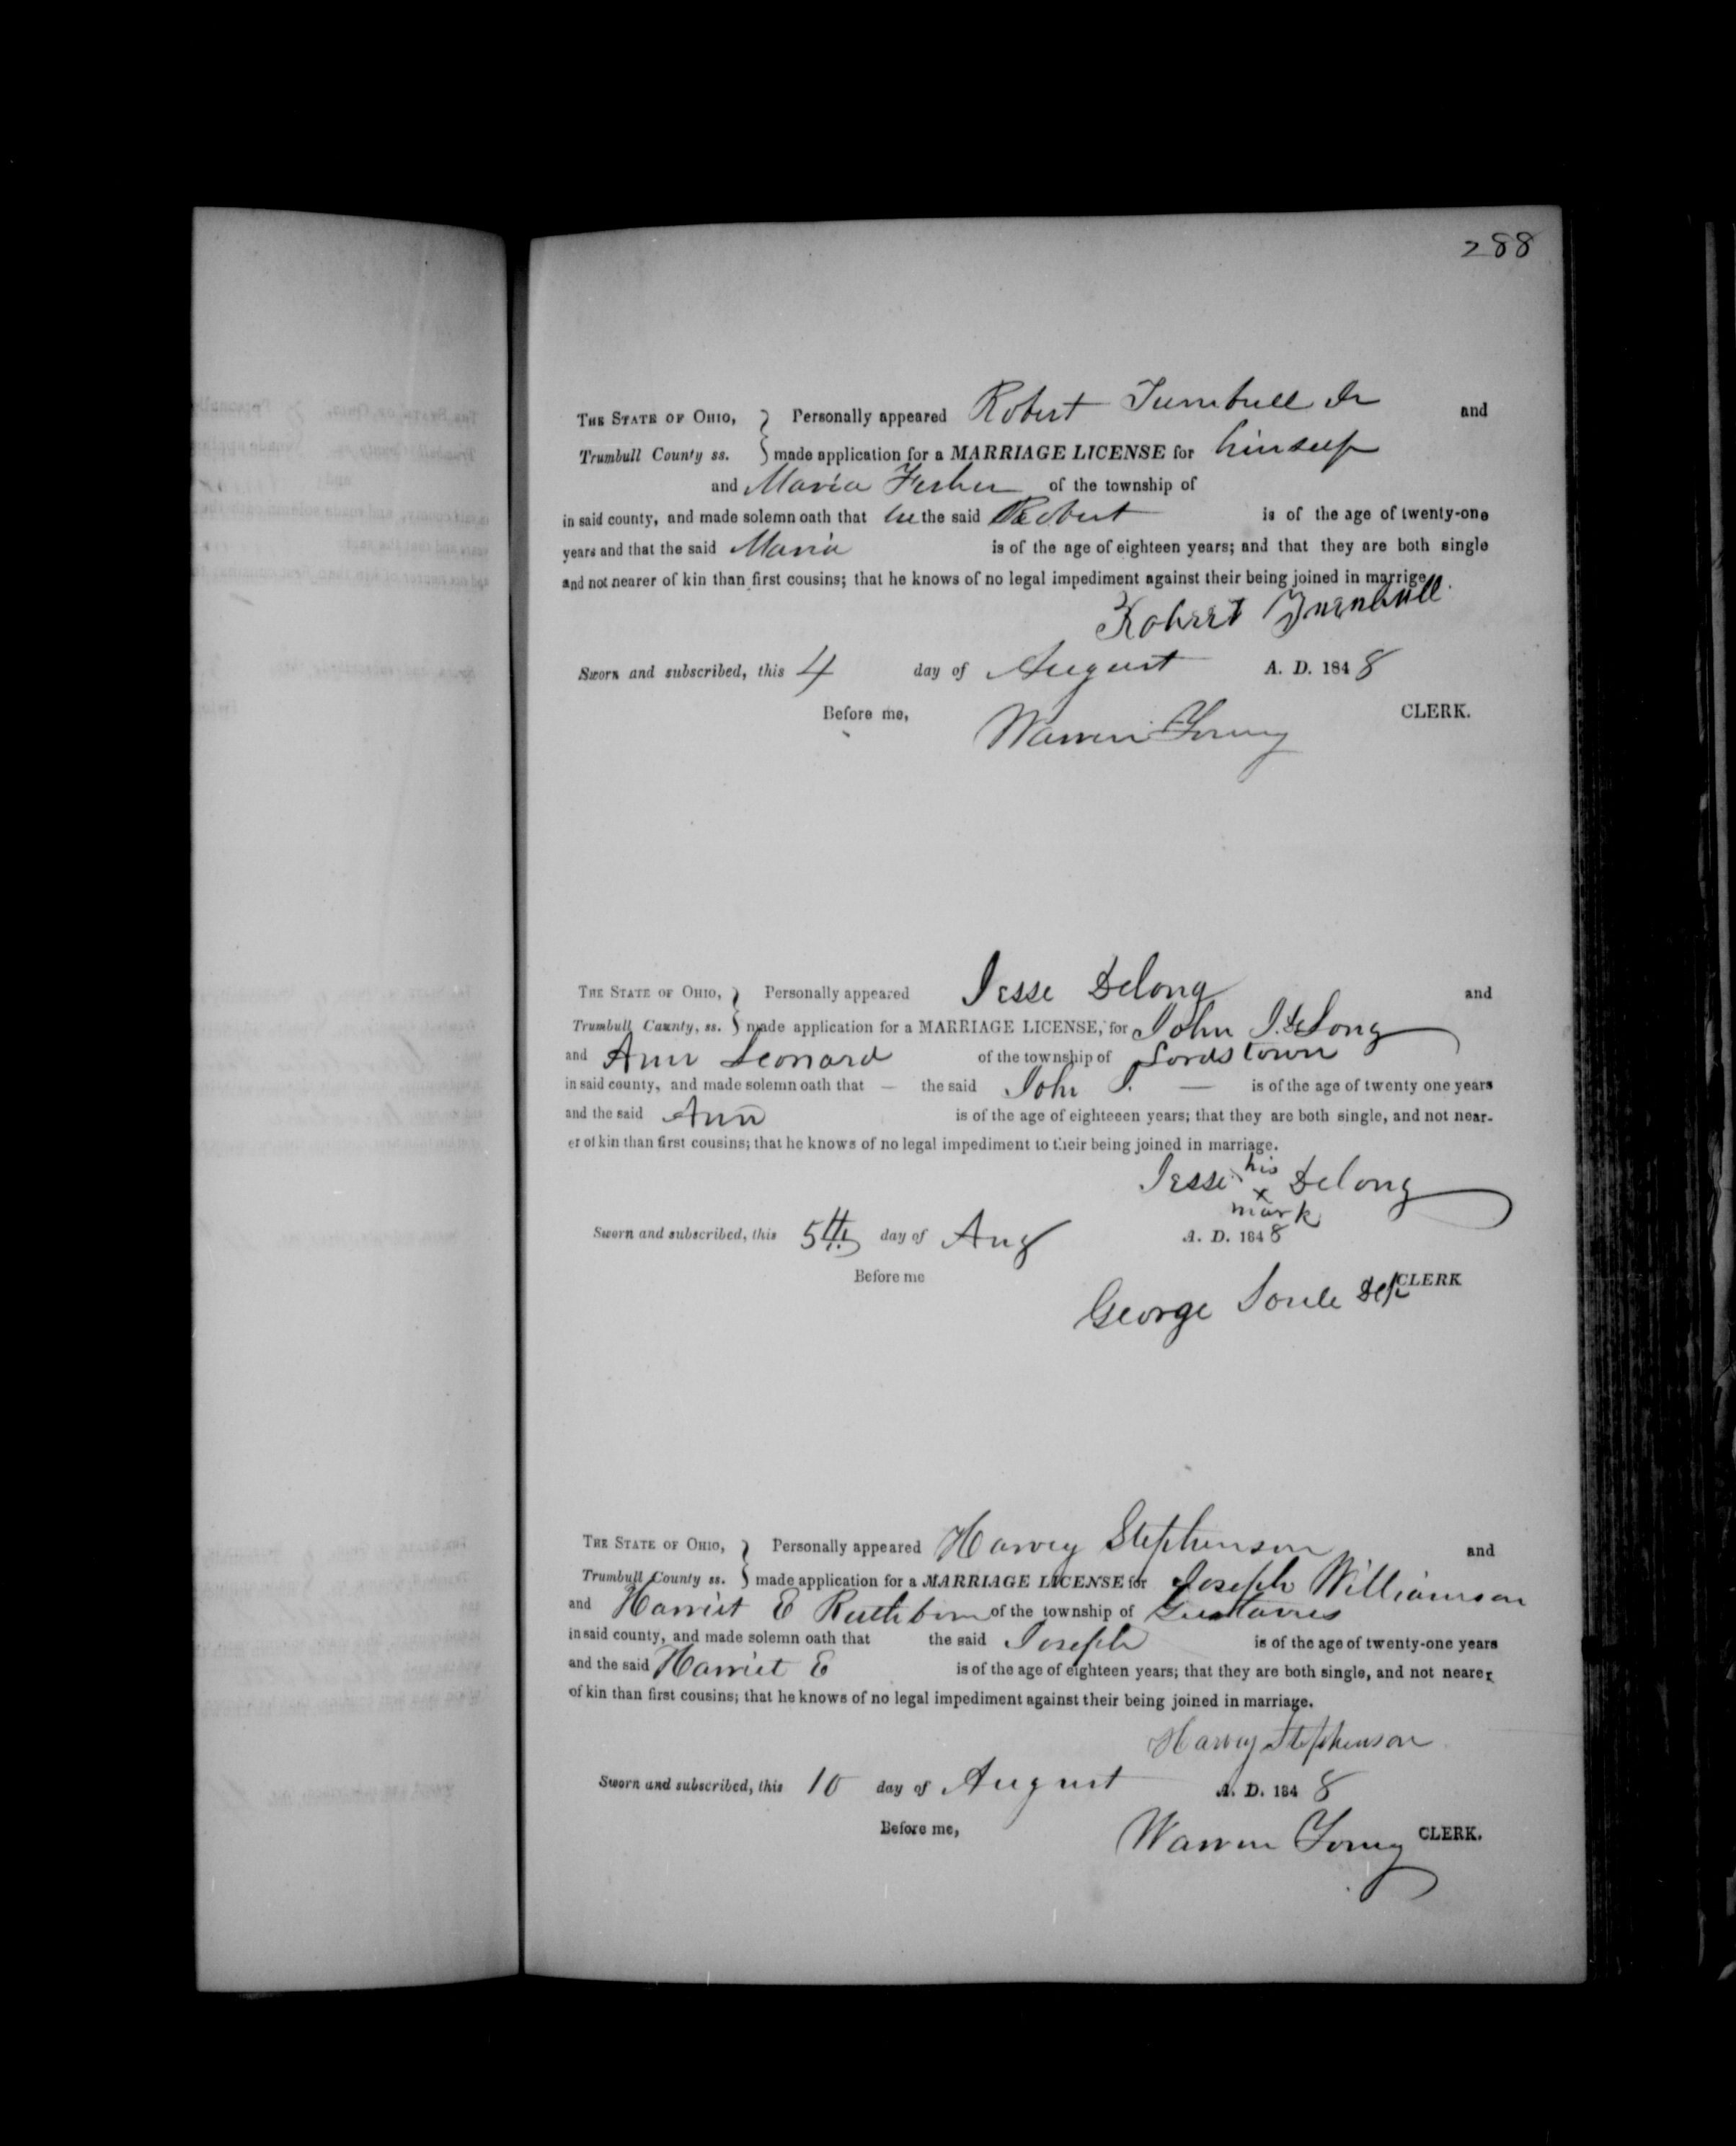 288
THE STATE OF OHIO, } Personally appeared Robert Turnbull Jr and
Trumbull County ss. } made application for a MARRIAGE LICENSE for himself
and Maria Fisher of the township of
in said county, and made solemn oath that he the said Robert is of the age of twenty-one
years and that the said Maria is of the age of eighteen years; and that they are both single
and not nearer of kin than first cousins; that he knows of no legal impediment against their being joined in marrige
Robert Turnbull.
Sworn and subscribed, this 4 day of August A. D. 1848
Before me, Warren Young CLERK.
THE STATE OF OHIO, } Personally appeared Jesse Delong and
Trumbull Caunty, ss. } made application for a MARRIAGE LICENSE, for John J. DeLong
and Ann Leonard of the township of Lordstown
in said county, and made solemn oath that — the said John J. — is of the age of twenty one years
and the said Ann is of the age of eighteeen years; that they are both single, and not near-
er of kin than first cousins; that he knows of no legal impediment to their being joined in marriage.
Jesse his x mark Delong
Sworn and subscribed, this 5th day of Aug A. D. 1848
Before me George Soule Dep CLERK
THE STATE OF OHIO, } Personally appeared Harvey Stephenson and
Trumbull County ss. } made application for a MARRIAGE LICENSE for Joseph Williamson
and Harriet E of the township of Gustavus
in said county, and made solemn oath that the said Joseph is of the age of twenty-one years
and the said Harriet E is of the age of eighteen years; that they are both single, and not nearer
of kin than first cousins; that he knows of no legal impediment against their being joined in marriage.
Harvey Stephenson
Sworn and subscribed, this 10 day of August A. D. 1848
Before me, Warren Young CLERK.